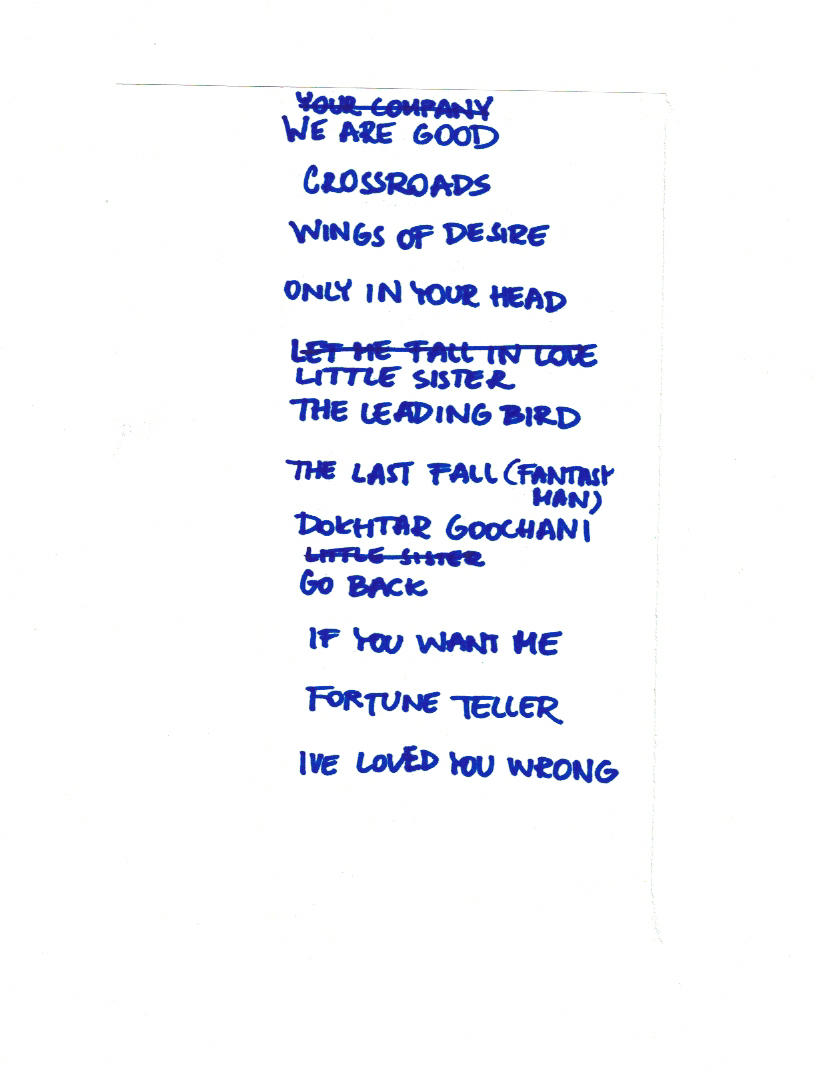 YOUR COMPANY
WE ARE GOOD
CROSSROADS
WINGS OF DESIRE
ONLY IN YOUR HEAD
LET ME FALL IN LOVE
LITTLE SISTER
THE LEADING BIRD
THE LAST FALL (FANTASY
MAN)
DOKHTAR GOOCHANI
LITTLE SISTER
GO BACK
IF YOU WANT ME
FORTUNE TELLER
IVE LOVED YOU WRONG